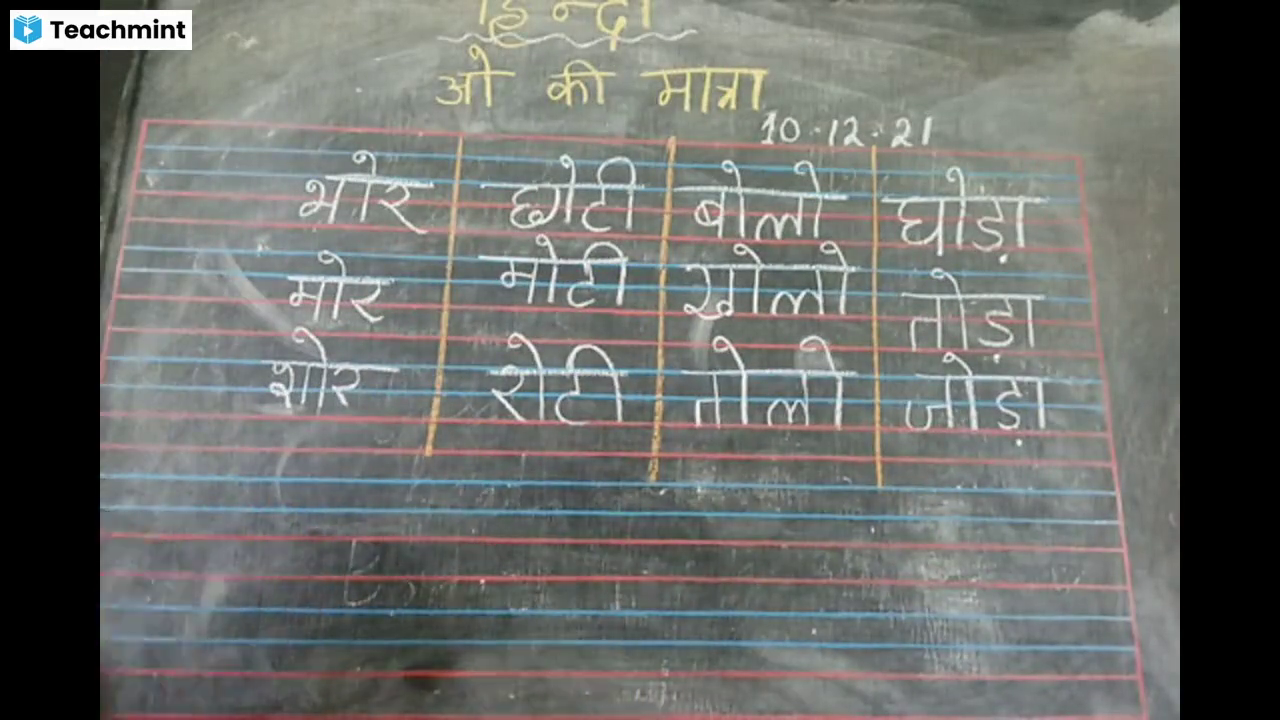 Teachmint
हिन्दी
ओ की मात्रा
10.12.21
भोर छोटी बोलो घोड़ा
मोर मोटी खोलो तोड़ा
शोर रोटी तोलो जोड़ा